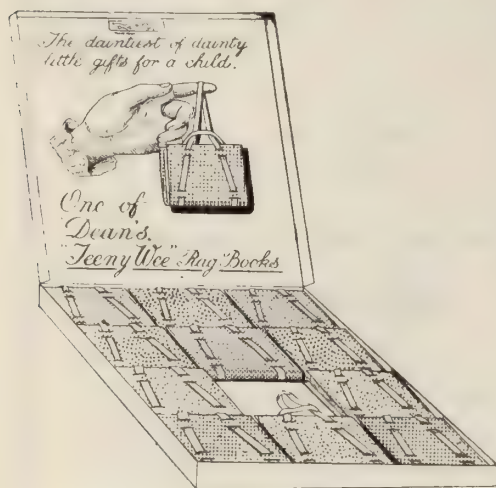 The daintiest of dainty
little gifts for a child.
One of
Dean's.
"Teeny Wee" Rag Books